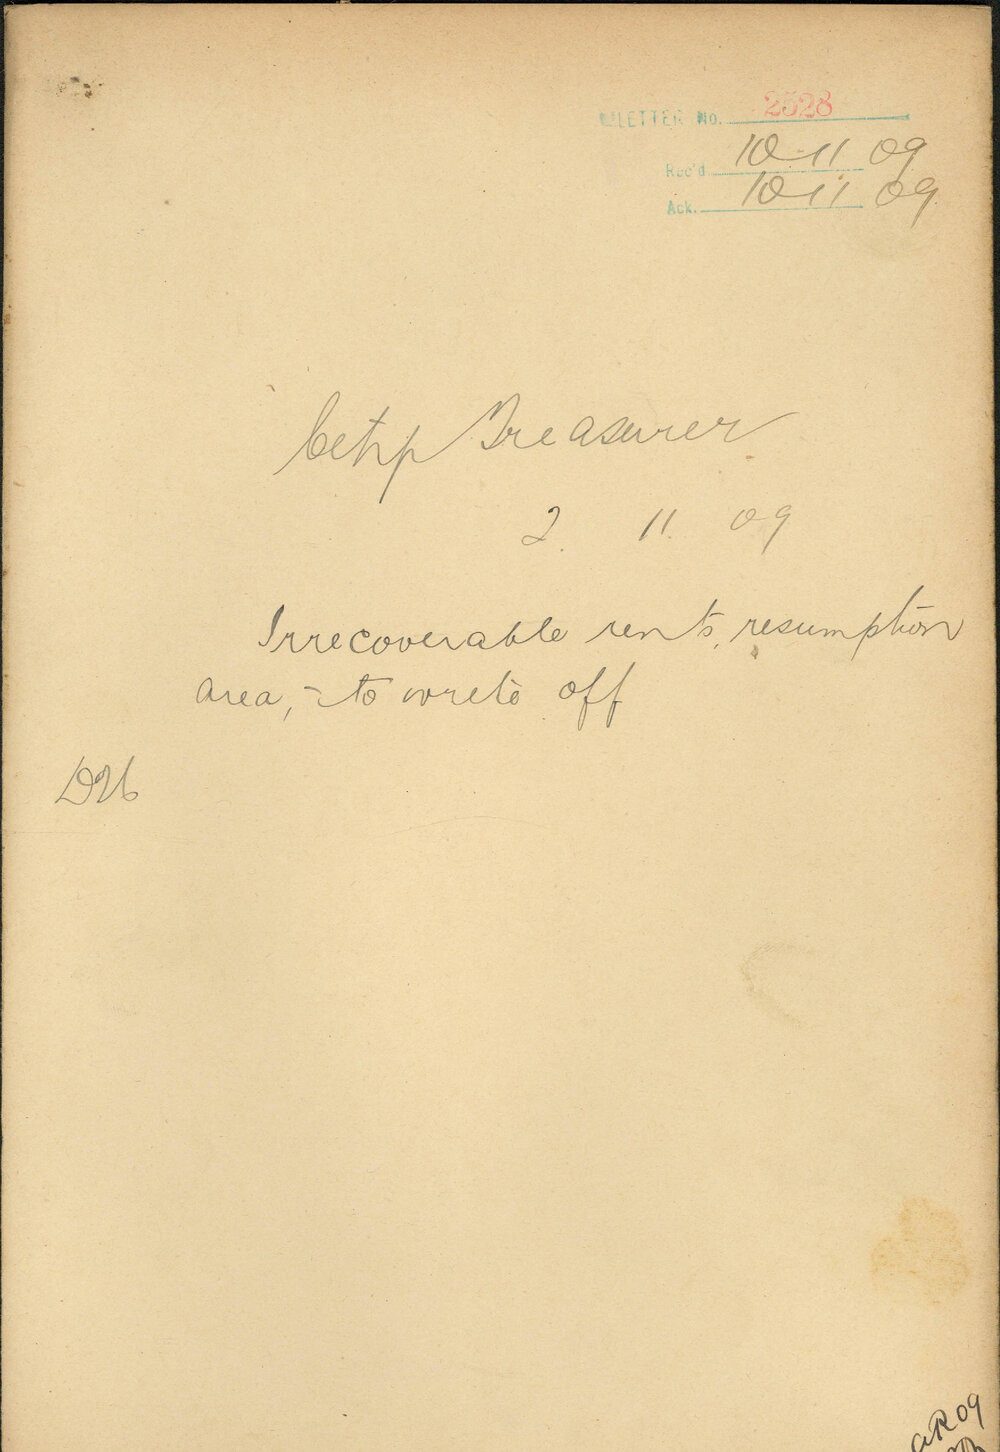 LETTER No. 2528
Rec'd. 10-11 09
Ack. 10-11 09
City Treasurer
2. 11. 09
Irrecoverable rents, resumption
area, - to write off
09